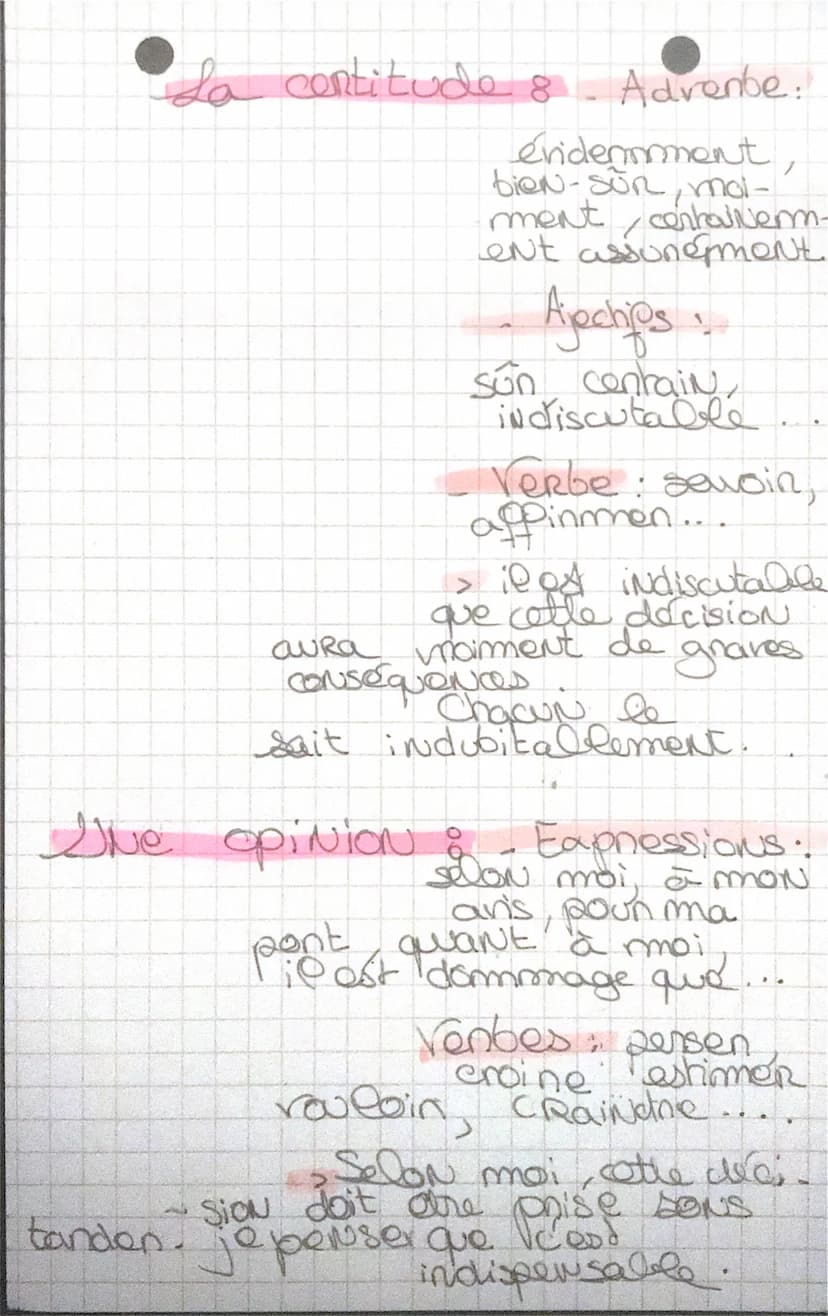 La certitude : - Adverbe :
évidemmment,
bien-sûr, vrai-
ment, certainem-
ent assurément.
- Ajectifs :
sûr certain,
indiscutable ...
- Verbe : savoir,
affirmer...
> il est indiscutable
que cette décision
aura vraiment de graves
conséquences.
Chacun le
sait indubitablement.
Une opinion : - Expressions :
selon moi, à mon
avis, pour ma
part, quant à moi,
il est dommmage que...
Verbes : penser,
croire estimer
vouloir, craindre ....
> Selon moi, cette déci-
- sion doit être prise sans
tarder. je penser que c'est
indispensable.